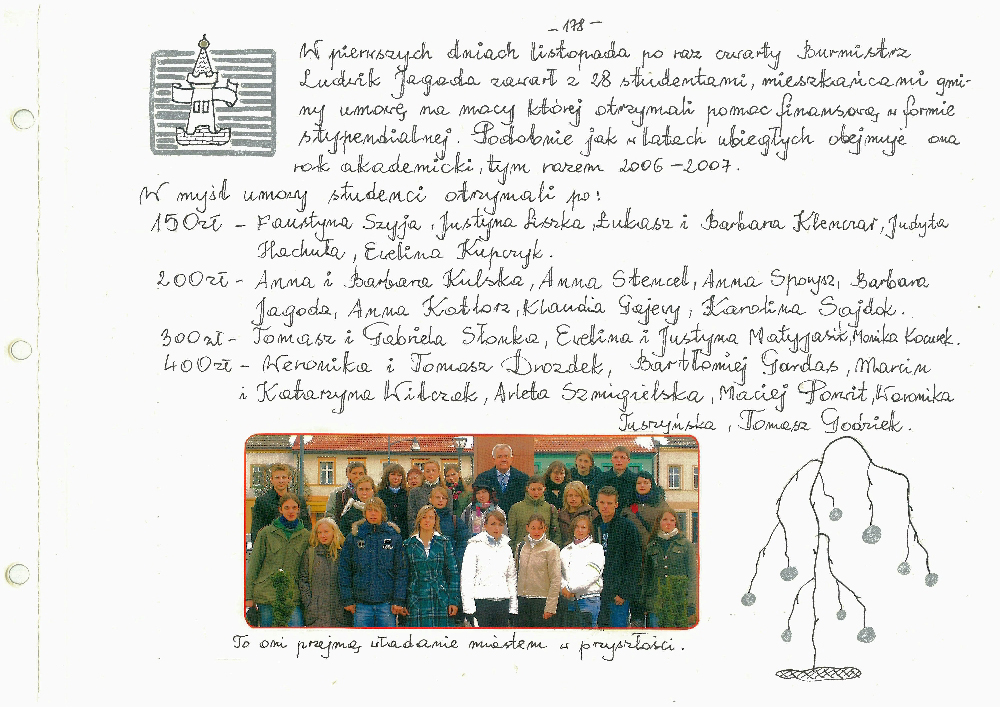 - 178 -
W pierwszych dniach listopada po raz czwarty Burmistrz
Ludwik Jagoda zawarł z 28 studentami, mieszkańcami gmi-
ny umowę na mocy której otrzymali pomoc finansową w formie
stypendialnej. Podobnie jak w latach ubiegłych obejmuje ona
rok akademicki, tym razem 2006 - 2007.
W myśl umowy studenci otrzymali po:
150zł - Faustyna Szyja, Justyna Liszka, Łukasz i Barbara Klenczar, Judyta
Hachuła, Ewelina Kupczyk.
200zł - Anna i Barbara Kulska, Anna Stencel, Anna Sporysz, Barbara
Jagoda, Anna Kotlorz, Klaudia Gajery, Karolina Sajdok.
300zł - Tomasz i Gabriela Słonka, Ewelina i Justyna Matyjasik, Monika Kocurek.
400zł - Weronika i Tomasz Drozdek, Bartłomiej Gardas, Marcin
i Katarzyna Wilczek, Arleta Szmigielska, Maciej Porwit, Weronika
Tuszyńska, Tomasz Godziek.
To oni przejmą władanie miastem w przyszłości.